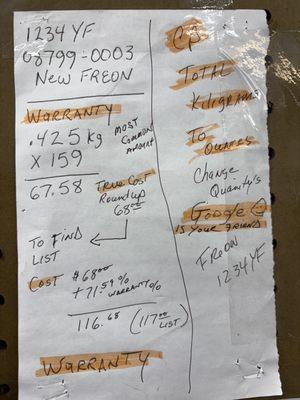 1234 YF
08799-0003
NEW FREON
WARRANTY
.425 kg MOST COMMON AMOUNT
X 159
67.58 TRUE COST
Round up
68⁰⁰
TO FIND
LIST
COST $68⁰⁰
+71.59%
WARRANTY %
116.68 (117⁰⁰ LIST)
WARRANTY
CP
TOTAL
Kilograms
To
Ounces
Change
Quanty's
GOOGLE
IS YOUR FRIEND
FREON
1234YF